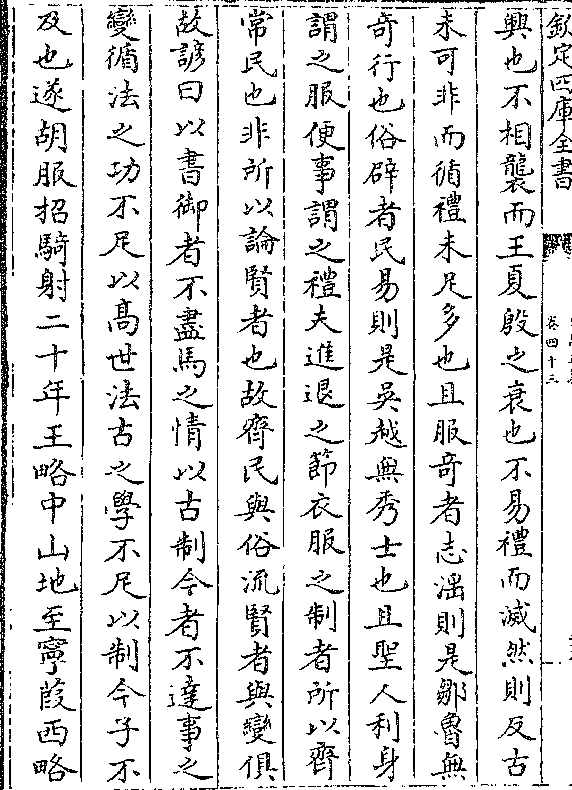 欽定四庫全書
卷四十三
興也不相襲而王夏殷之衰也不易禮而滅然則反古
未可非而循禮未足多也且服奇者志滛則是鄒魯無
奇行也俗辟者民易則是吳越無秀士也且聖人利身
謂之服便事謂之禮夫進退之節衣服之制者所以齊
常民也非所以論賢者也故齊民與俗流賢者與變俱
故諺曰以書御者不盡馬之情以古制今者不達事之
變循法之功不足以髙世法古之學不足以制今子不
及也遂胡服招騎射二十年王略中山地至寧葭西略